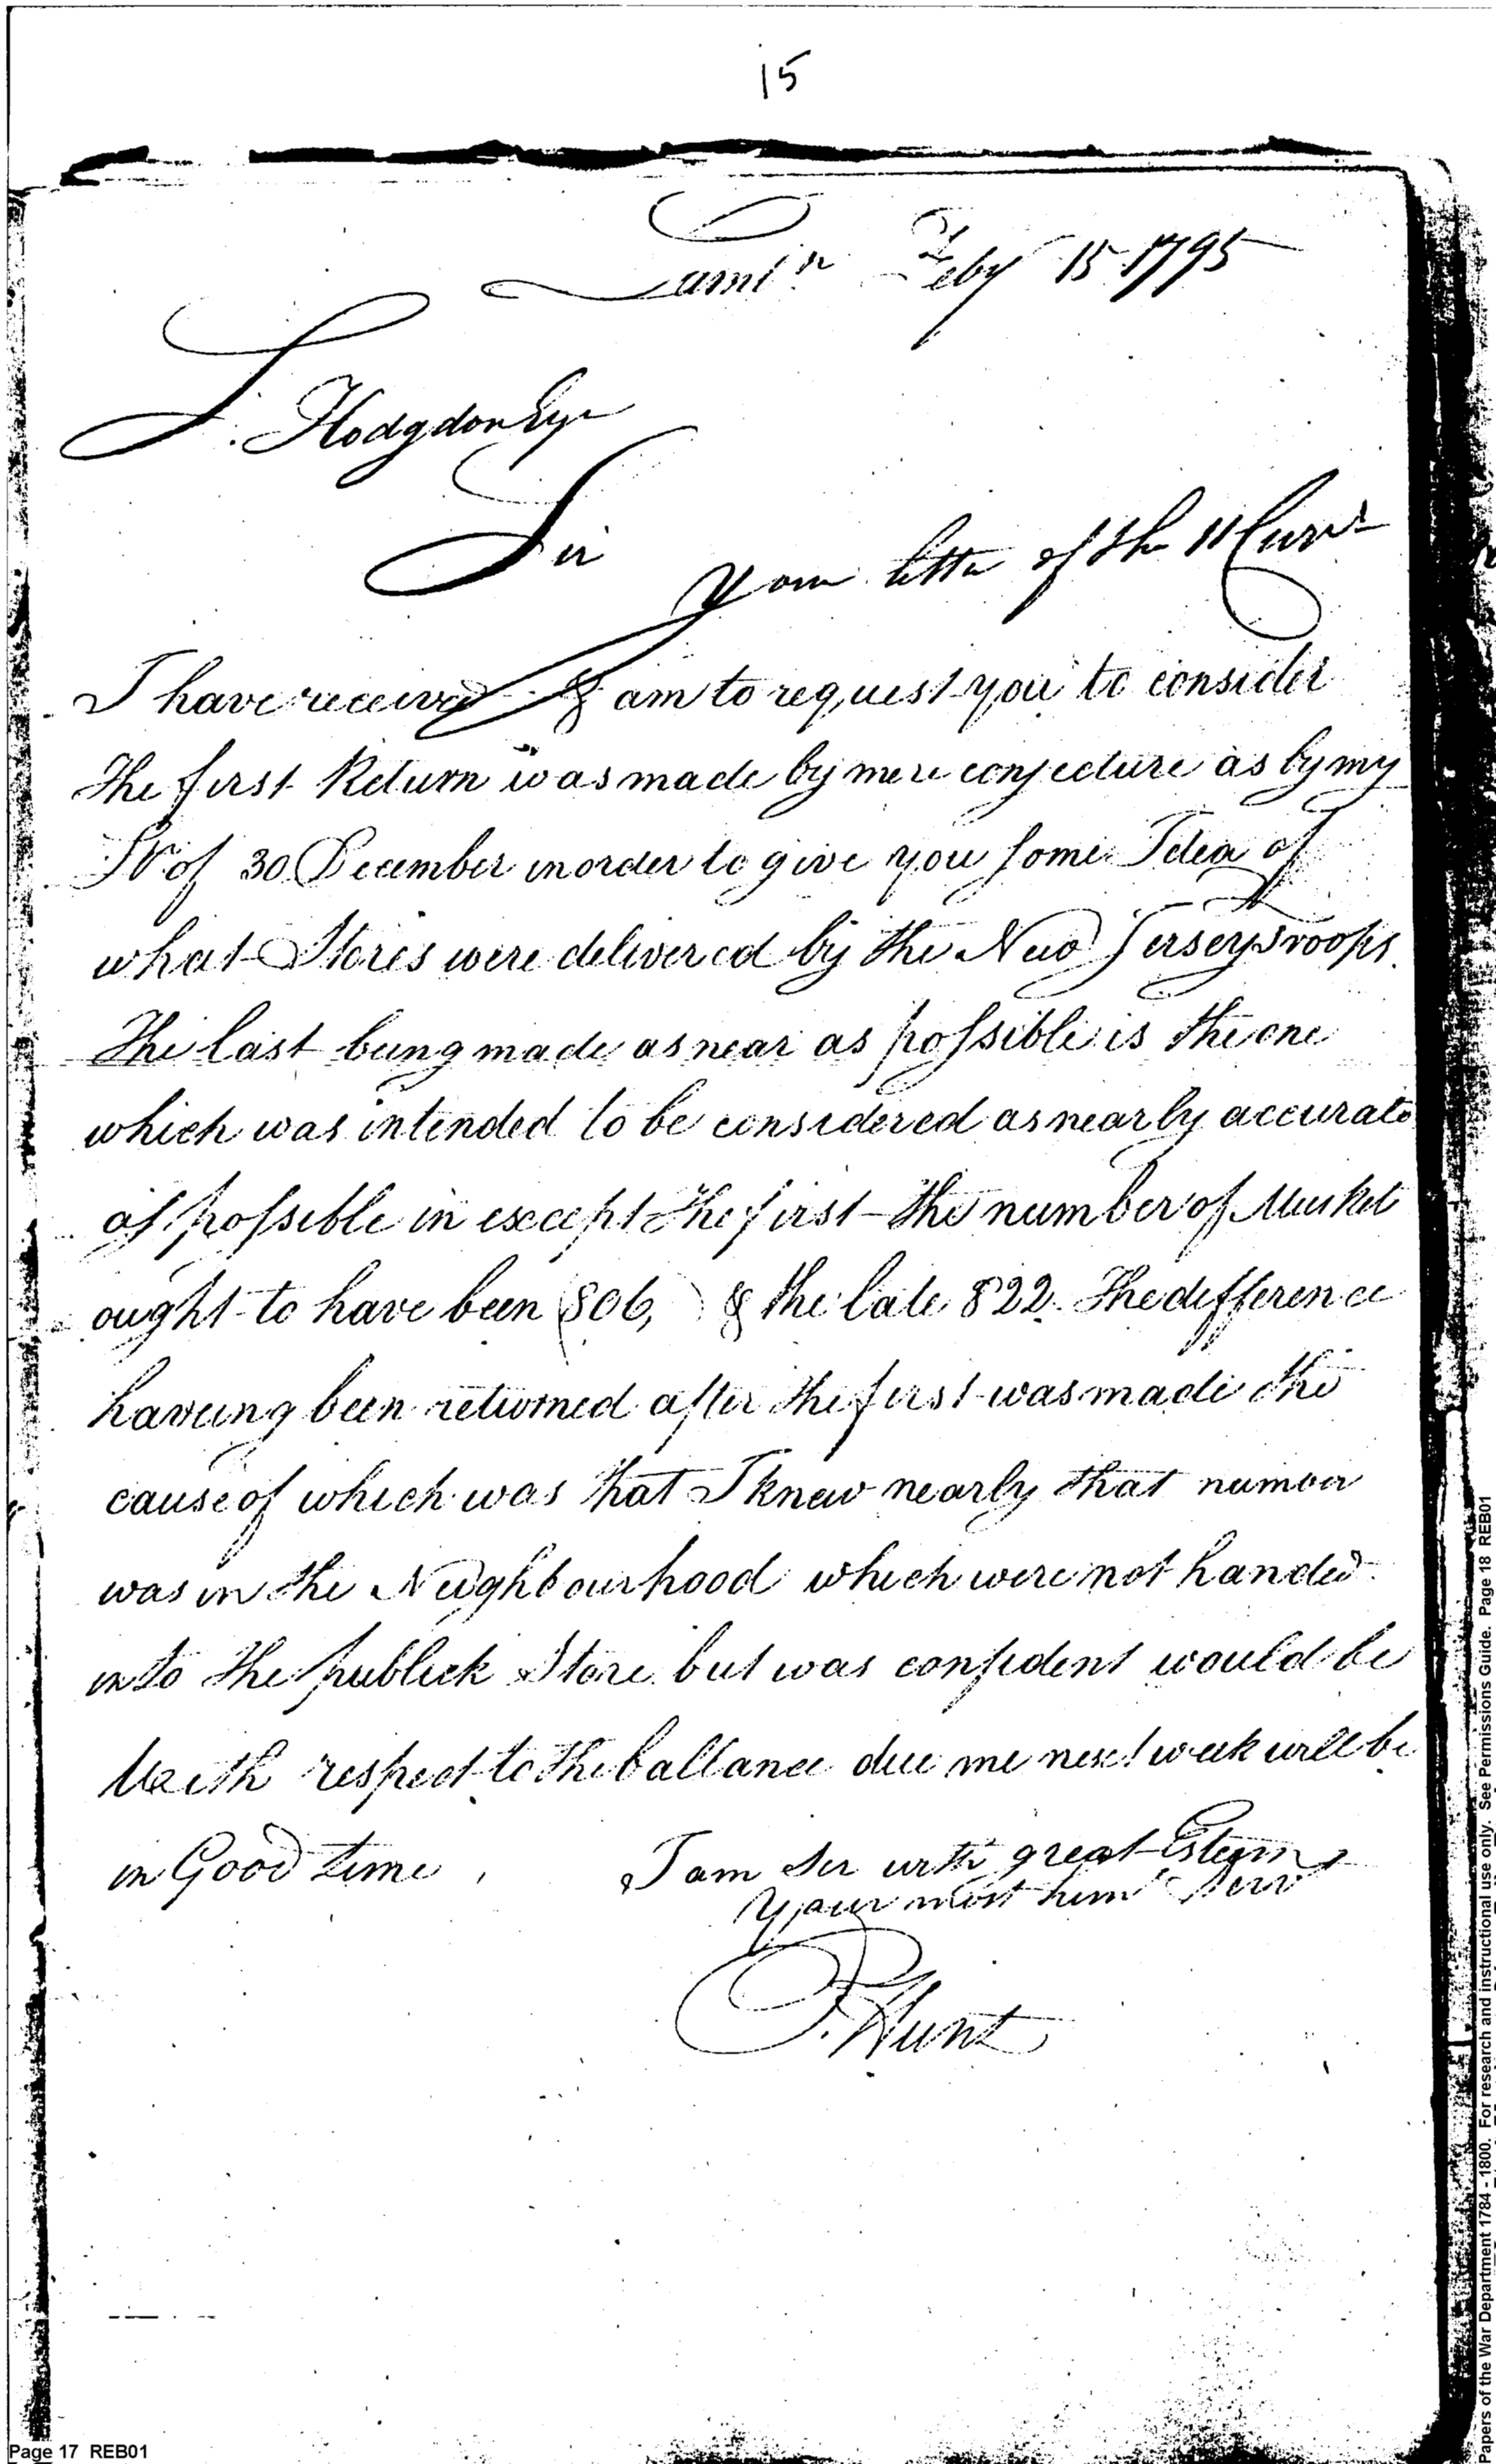 15
Lamr. Feby 15 1795
S. Hodgdon Esqr
Sir
Your letter of the 11 Currt
I have received & am to request you to consider
the first Return was made by mere conjecture as by my
of 30 December in order to give you some Idea of
what Stores were delivered by the New Jersey Troops.
The last being made as near as possible is the one
which was intended to be considered as nearly accurate
as possible in except the first - the number of Musket
ought to have been 806, & the late 822. The difference
haveing been returned after the first was made the
cause of which was that I knew nearly that number
was in the Neighbourhood which were not handed
into the publick Store but was confident would be
With respect to the ballance due me next week will be
in Good time, I am Sir with great Esteem
Your most humb Servt
P. Hunt
Page 17 REB01
Papers of the War Department 1784 - 1800. For research and instructional use only. See Permissions Guide. Page 18 REB01